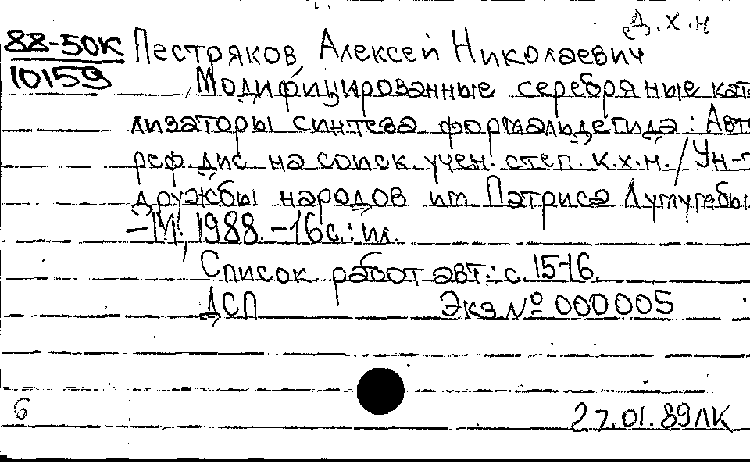 Д.х.н
88-50К Пестряков, Алексей Николаевич
10159 Модифицированные серебряные ката
лизаторы синтеза формальдегида: Авто
реф. дис. на соиск. учен. степ. к.х.н. / Ун-т
дружбы народов им. Патриса Лумумбы
-М., 1988. -16с.: ил.
Список работ авт.: с. 15-16.
ДСП Экз № 000005
6 27.01.89ЛК